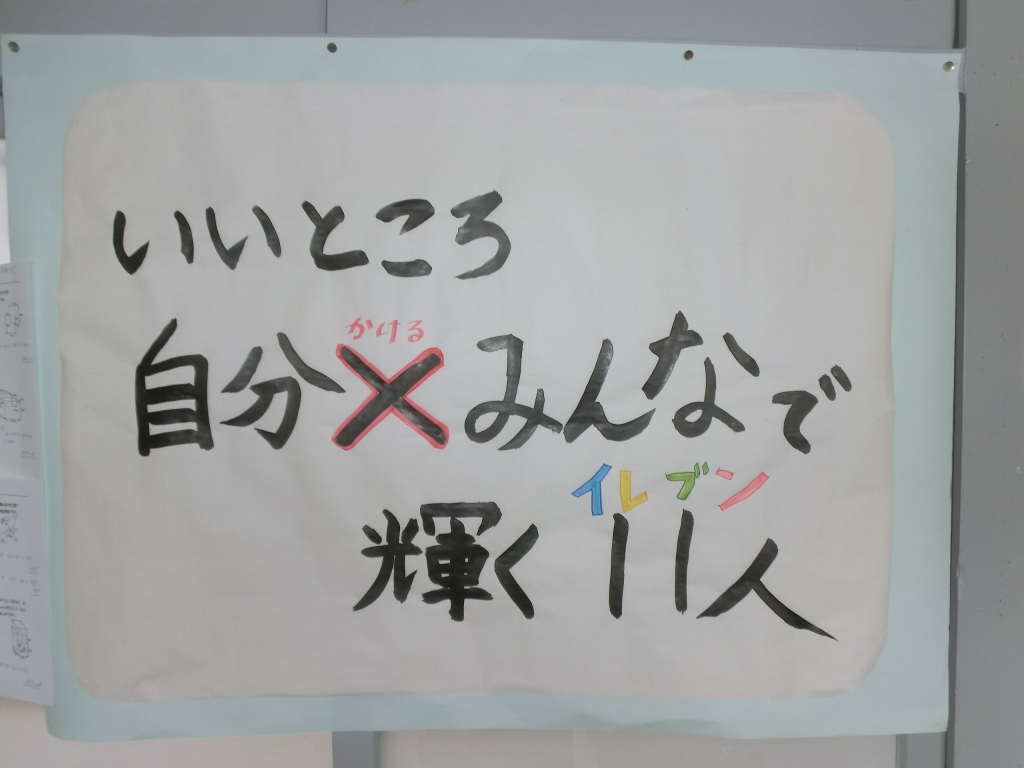 いいところ
かける
自分×みんなで
イレブン
輝く11人